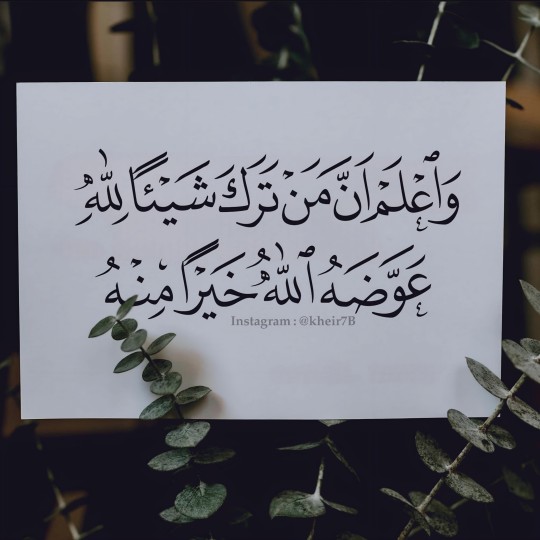 وَاْعْلَمْ اَنَّ مَنْ تَرَكَ شَيْئاً لِلّٰهِ
عَوَّضَهُ اللّٰهُ خَيْراً مِنْهُ
Instagram : @kheir7B